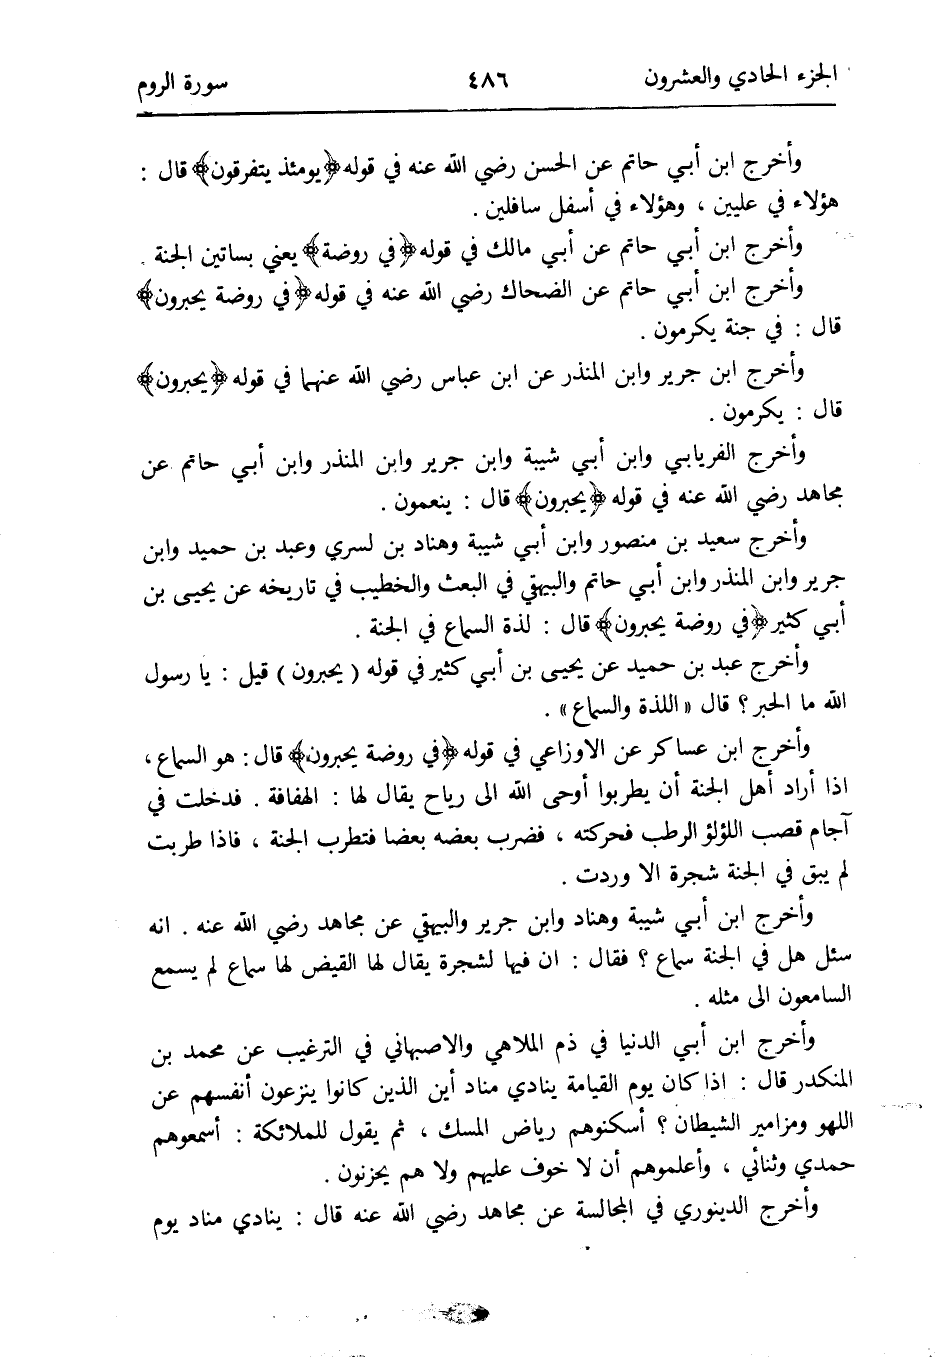 الجزء الحادي والعشرون ٤٨٦ سورة الروم
وأخرج ابن أبي حاتم عن الحسن رضي الله عنه في قوله ﴿يومئذ يتفرقون﴾ قال :
هؤلاء في عليين ، وهؤلاء في أسفل سافلين .
وأخرج ابن أبي حاتم عن أبي مالك في قوله ﴿في روضة﴾ يعني بساتين الجنة .
وأخرج ابن أبي حاتم عن الضحاك رضي الله عنه في قوله ﴿في روضة يحبرون﴾
قال : في جنة يكرمون .
وأخرج ابن جرير وابن المنذر عن ابن عباس رضي الله عنهما في قوله ﴿يحبرون﴾
قال : يكرمون .
وأخرج الفريابي وابن أبي شيبة وابن جرير وابن المنذر وابن أبي حاتم عن
مجاهد رضي الله عنه في قوله ﴿يحبرون﴾ قال : ينعمون .
وأخرج سعيد بن منصور وابن أبي شيبة وهناد بن لسري وعبد بن حميد وابن
جرير وابن المنذر وابن أبي حاتم والبيهقي في البعث والخطيب في تاريخه عن يحيى بن
أبي كثير ﴿في روضة يحبرون﴾ قال : لذة السماع في الجنة .
وأخرج عبد بن حميد عن يحيى بن أبي كثير في قوله ( يحبرون ) قيل : يا رسول
الله ما الحبر ؟ قال « اللذة والسماع » .
وأخرج ابن عساكر عن الاوزاعي في قوله ﴿في روضة يحبرون﴾ قال : هو السماع ،
اذا أراد أهل الجنة أن يطربوا أوحى الله الى رياح يقال لها : الهفافة . فدخلت في
آجام قصب اللؤلؤ الرطب فحركته ، فضرب بعضه بعضا فتطرب الجنة ، فاذا طربت
لم يبق في الجنة شجرة الا وردت .
وأخرج ابن أبي شيبة وهناد وابن جرير والبيهقي عن مجاهد رضي الله عنه . انه
سئل هل في الجنة سماع ؟ فقال : ان فيها لشجرة يقال لها القيض لها سماع لم يسمع
السامعون الى مثله .
وأخرج ابن أبي الدنيا في ذم الملاهي والاصبهاني في الترغيب عن محمد بن
المنكدر قال : اذا كان يوم القيامة ينادي مناد أين الذين كانوا ينزعون أنفسهم عن
اللهو ومزامير الشيطان ؟ أسكنوهم رياض المسك ، ثم يقول للملائكة : أسمعوهم
حمدي وثنائي ، وأعلموهم أن لا خوف عليهم ولا هم يحزنون .
وأخرج الدينوري في المجالسة عن مجاهد رضي الله عنه قال : ينادي مناد يوم